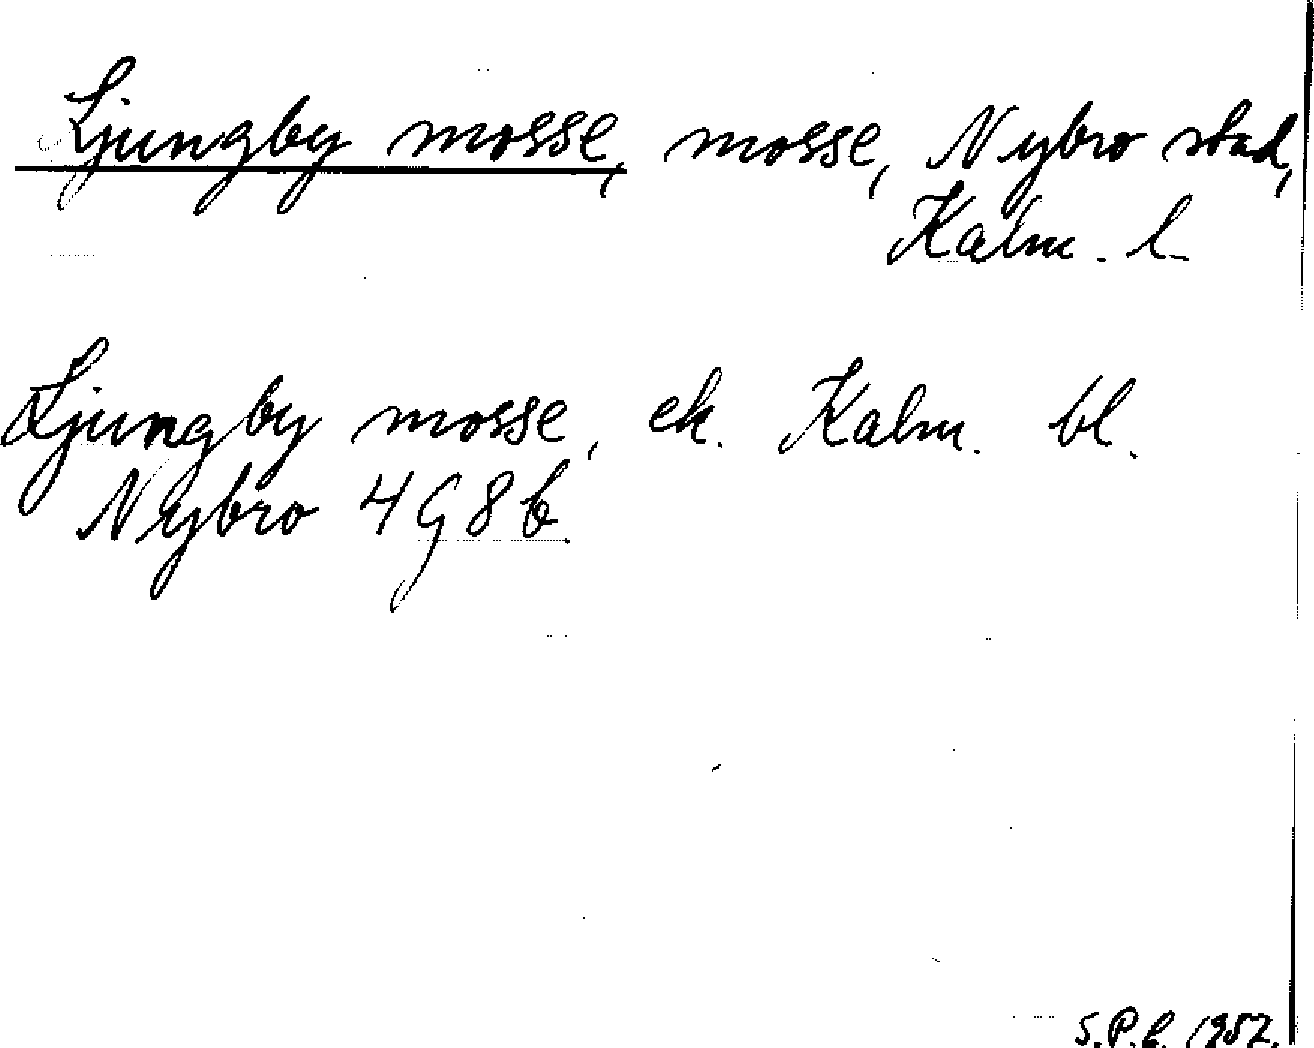 Ljungby mosse, mosse, Nybro stad,
Kalm. l.
Ljungby mosse, ek. Kalm. bl.
Nybro 4G8b.
S.P.E. 1952.